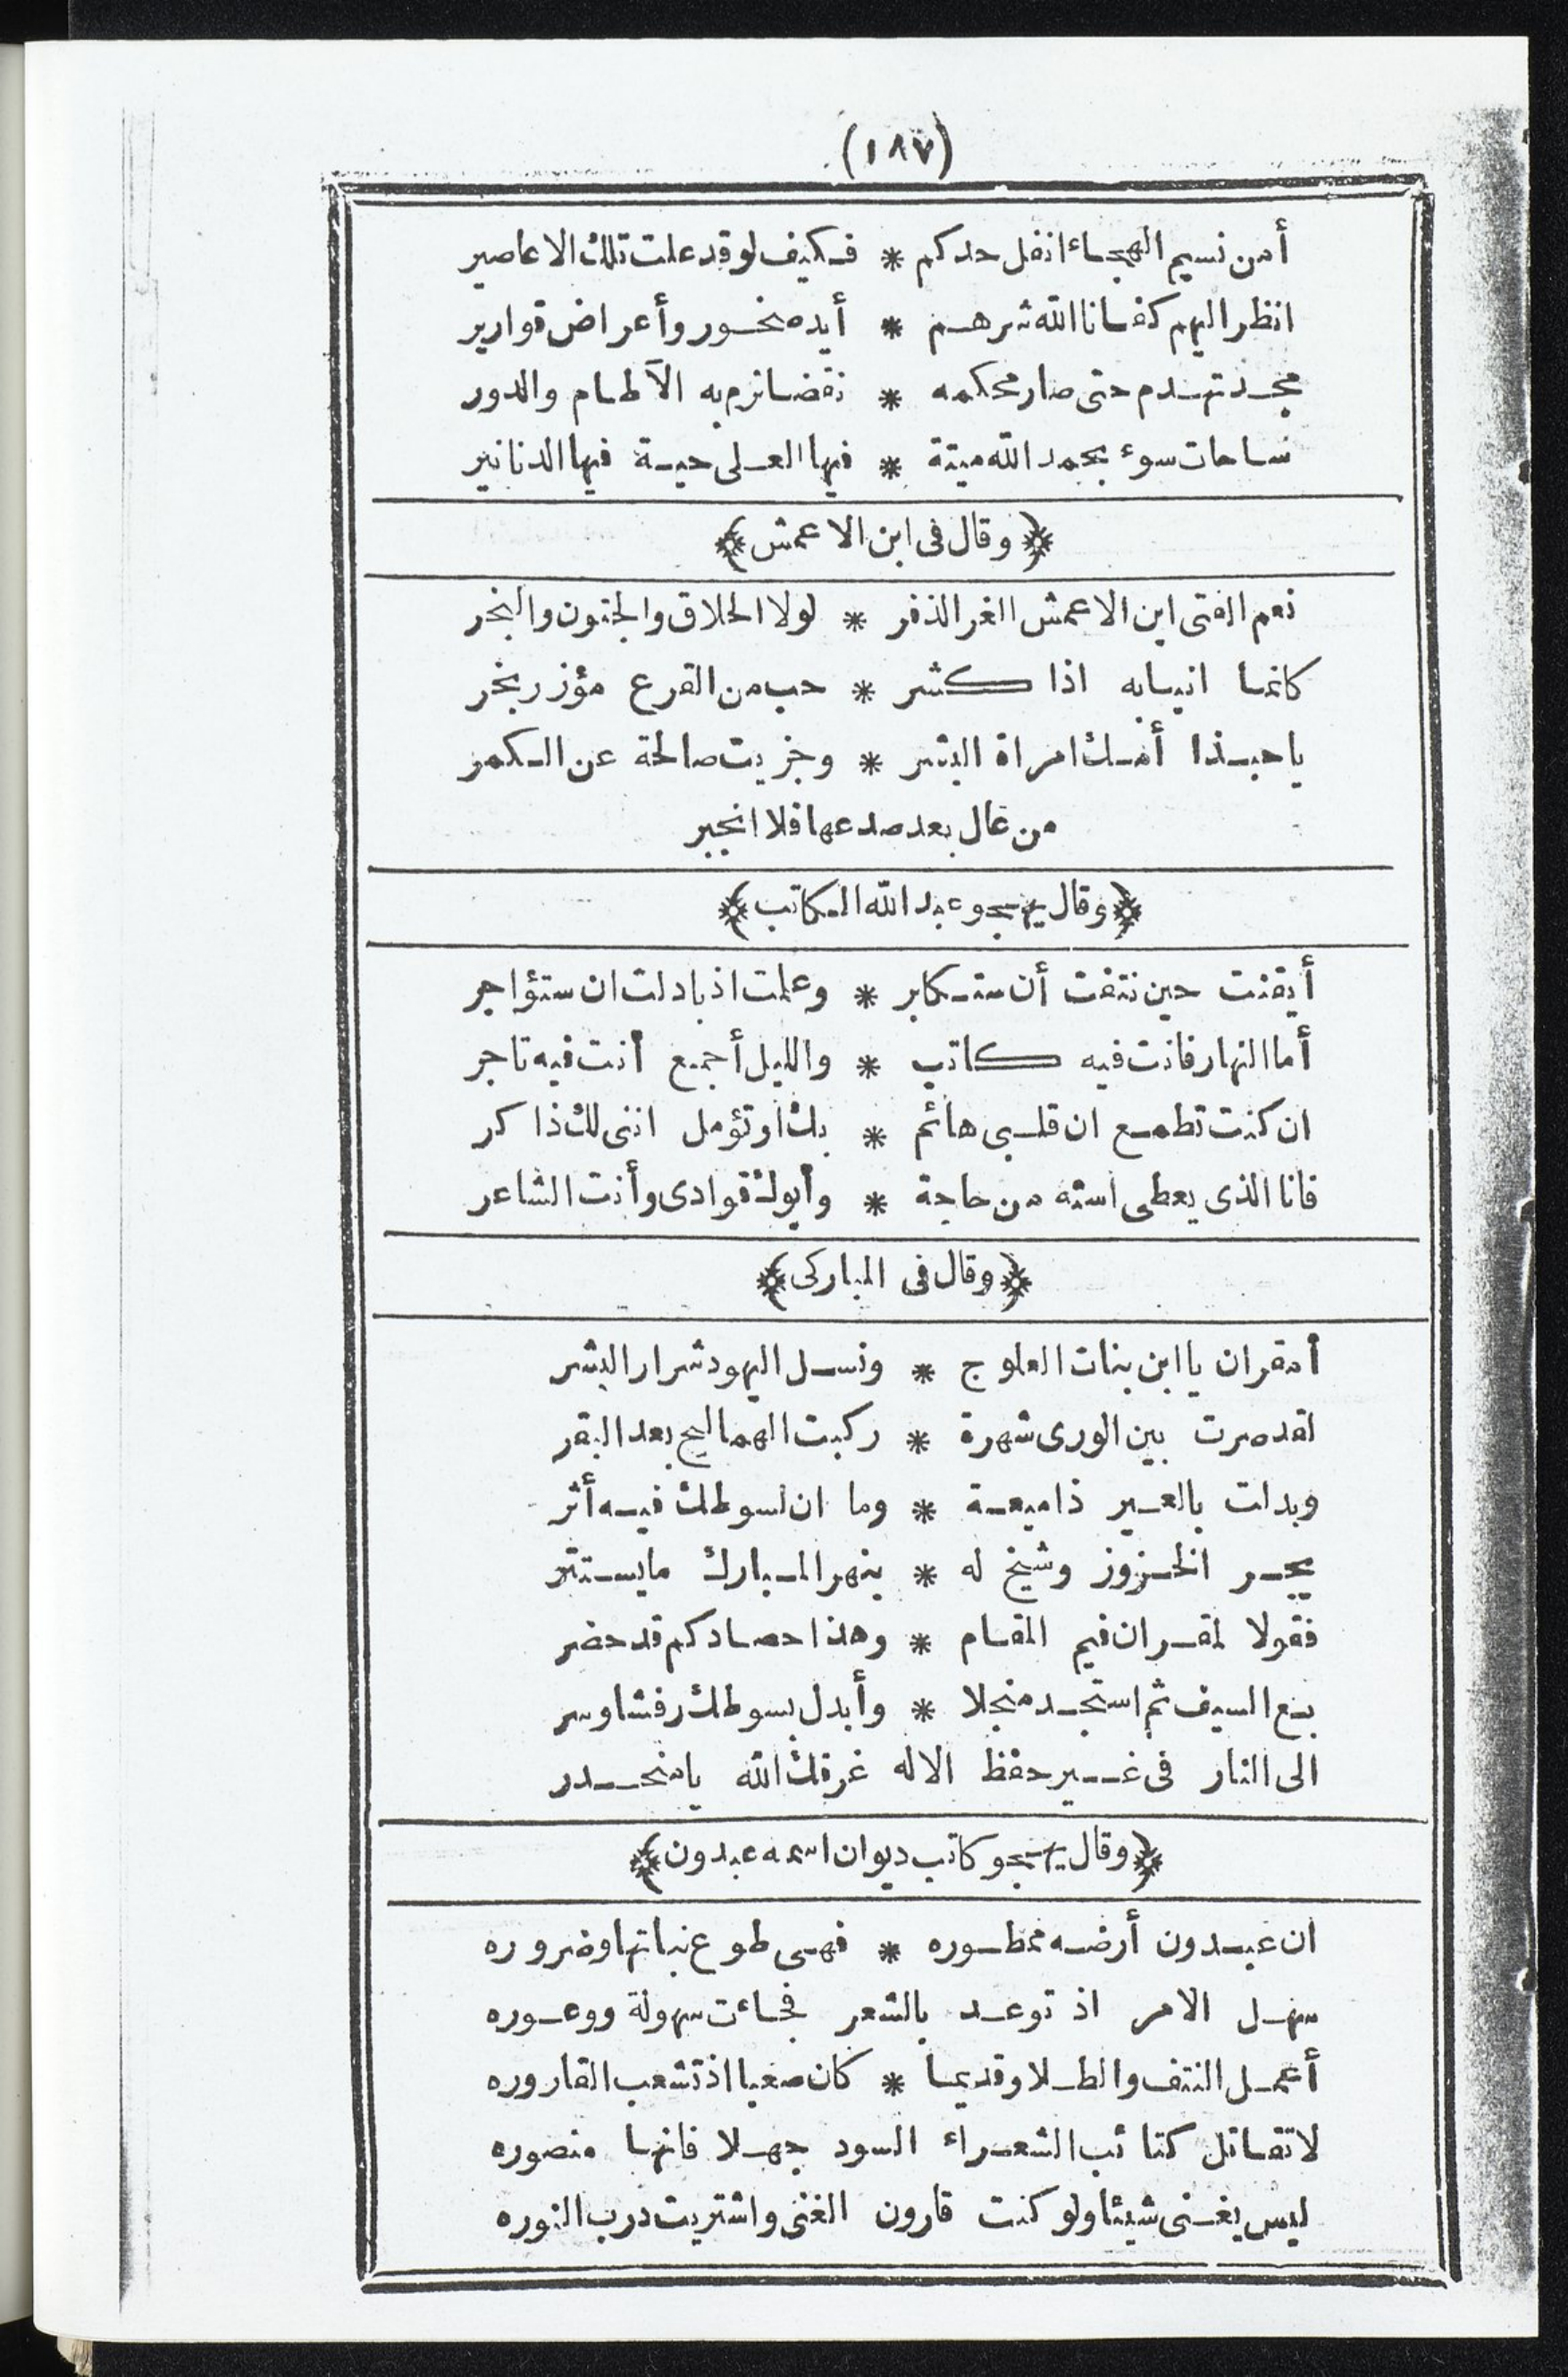 (١٨٧)
أمن نسيم الهجاء انفل حدكم * فكيف لو قد علت تلك الاعاصير
انظر اليهم كفانا الله شرهم * أيد صخور وأعراض قوارير
مجد تهدم حتى صار محكمه * نقضا ترم به الآطام والدور
ساحات سوء بحمد الله ميتة * فيها العلى حية فيها الدنانير
﴿وقال فى ابن الاعمش﴾
نعم الفتى ابن الاعمش الغر الذفر * لولا الحلاق والجنون والبخر
كانما انيابه اذا كشر * حب من القرع مؤزر نخر
يا حبذا أمك امراة البشر * وجزيت صالحة عن الكمر
من عال بعد صدعها فلا انجبر
﴿وقال يهجو عبد الله الكاتب﴾
أيقنت حين نتفت أن ستكابر * وعلمت اذ بادلت ان ستؤاجر
أما النهار فانت فيه كاتب * والليل أجمع أنت فيه تاجر
ان كنت تطمع ان قلبى هائم * بك او تؤمل اننى لك ذاكر
فانا الذى يعطى استه من حاجة * وأبوك قوادى وأنت الشاعر
﴿وقال فى المباركى﴾
أمقران يا ابن بنات العلوج * ونسل اليهود شرار البشر
لقد صرت بين الورى شهرة * ركبت الهماليج بعد البقر
وبدلت بالعير ذا ميعة * وما ان لسوطك فيه أثر
يجر الخزوز وشيخ له * بنهر المبارك ما يستتر
فقولا لمقران فيم المقام * وهذا حصادكم قد حضر
بع السيف ثم استجد منجلا * وأبدل بسوطك رفشا وسر
الى النار فى غير حفظ الاله غرقك الله يا منحدر
﴿وقال يهجو كاتب ديوان اسمه عبدون﴾
ان عبدون أرضه ممطوره * فهى طوع نباتها وضروره
سهل الامر اذ توعد بالشعر فجاءت سهولة ووعوره
أعمل النتف والطلا وقديما * كان صعبا اذ تشعب القاروره
لا تقاتل كتائب الشعراء السود جهلا فانها منصوره
ليس يغنى شيئا ولو كنت قارون الغنى واشتريت درب النوره